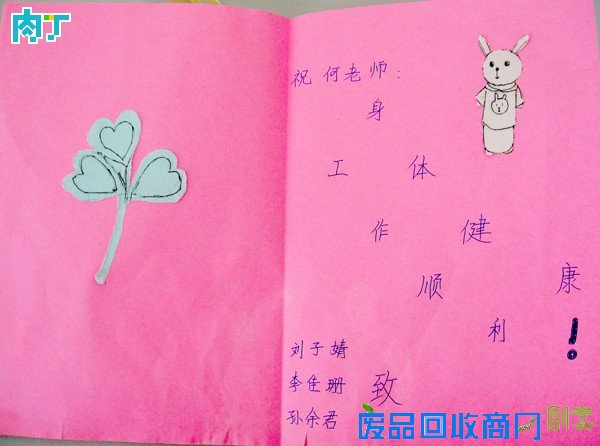 肉丁
祝 何老师：
身
工 体
作 健
顺 康
利 ！
刘子婧
李佳珊 致
孙余君
废品回收商网